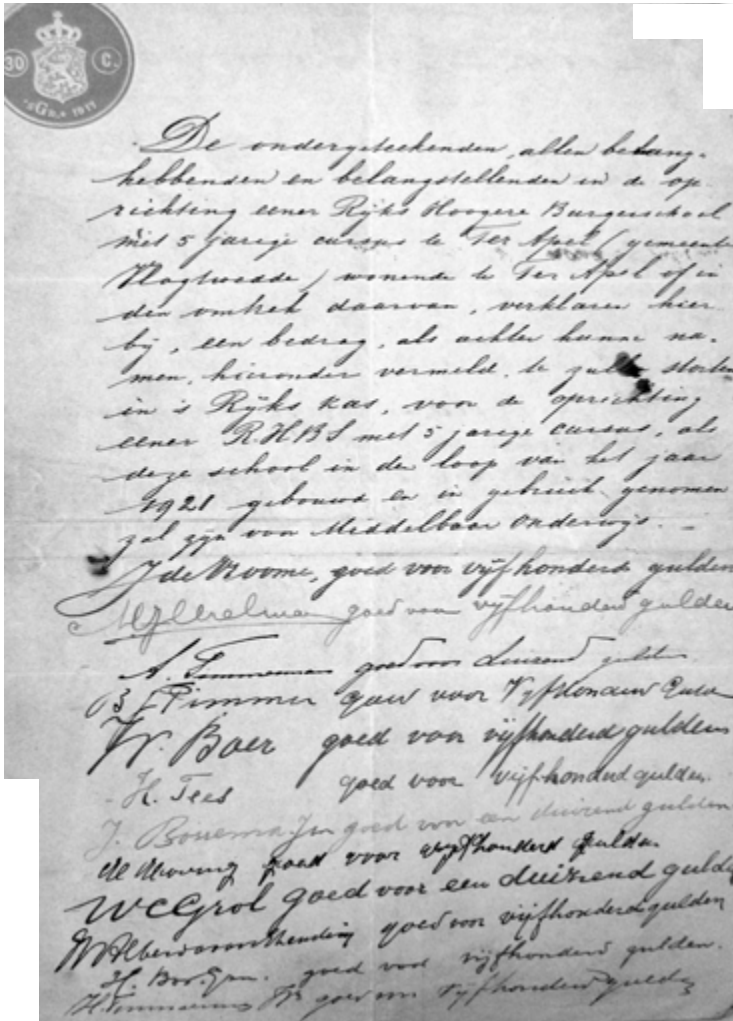 30 C.
De ondergeteekenden, allen belang-
hebbenden en belangstellenden in de op-
richting eener Rijks Hoogere Burgerschool
met 5 jarige cursus te Ter Apel (gemeente
Vlagtwedde) wonende te Ter Apel of in
den omtrek daarvan, verklaren hier
bij, een bedrag, als achter hunne na-
men, hieronder vermeld, te zullen storten
in 's Rijks kas, voor de oprichting
eener R.H.B.S met 5 jarige cursus, als
deze school in den loop van het jaar
1921 gebouwd en in gebruik genomen
zal zijn voor Middelbaar Onderwijs. -
J de Vroome, goed voor vijfhonderd gulden
goed voor vijfhonderd gulden
A. Timmerman goed voor duizend gulden
Pimmer goed voor Vijfhonderd
W. Boer goed voor vijfhonderd guldens
H. Tees goed voor vijfhonderd gulden.
J. Bossema Jzn goed voor een duizend gulden
goed voor vijfhonderd gulden
W C Grol goed voor een duizend gulden
goed voor vijfhonderd gulden
H. goed voor vijfhonderd gulden.
H. Timmerman goed voor Vijfhonderd gulden